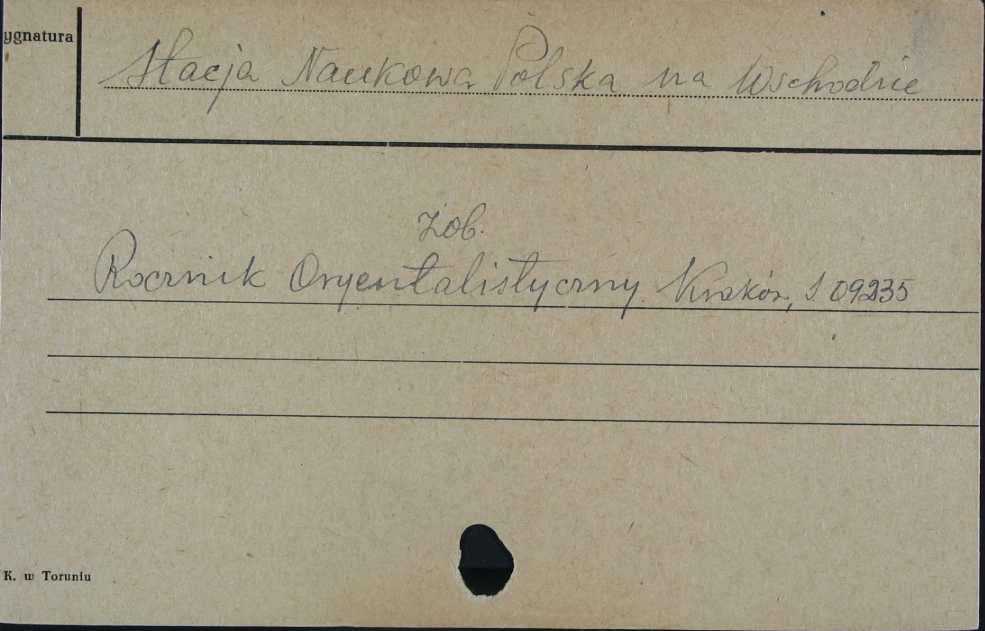 ygnatura
Stacja Naukowa Polska na Wschodzie
zob.
Rocznik Oryentalistyczny. Kraków, S 09235
K. w Toruniu